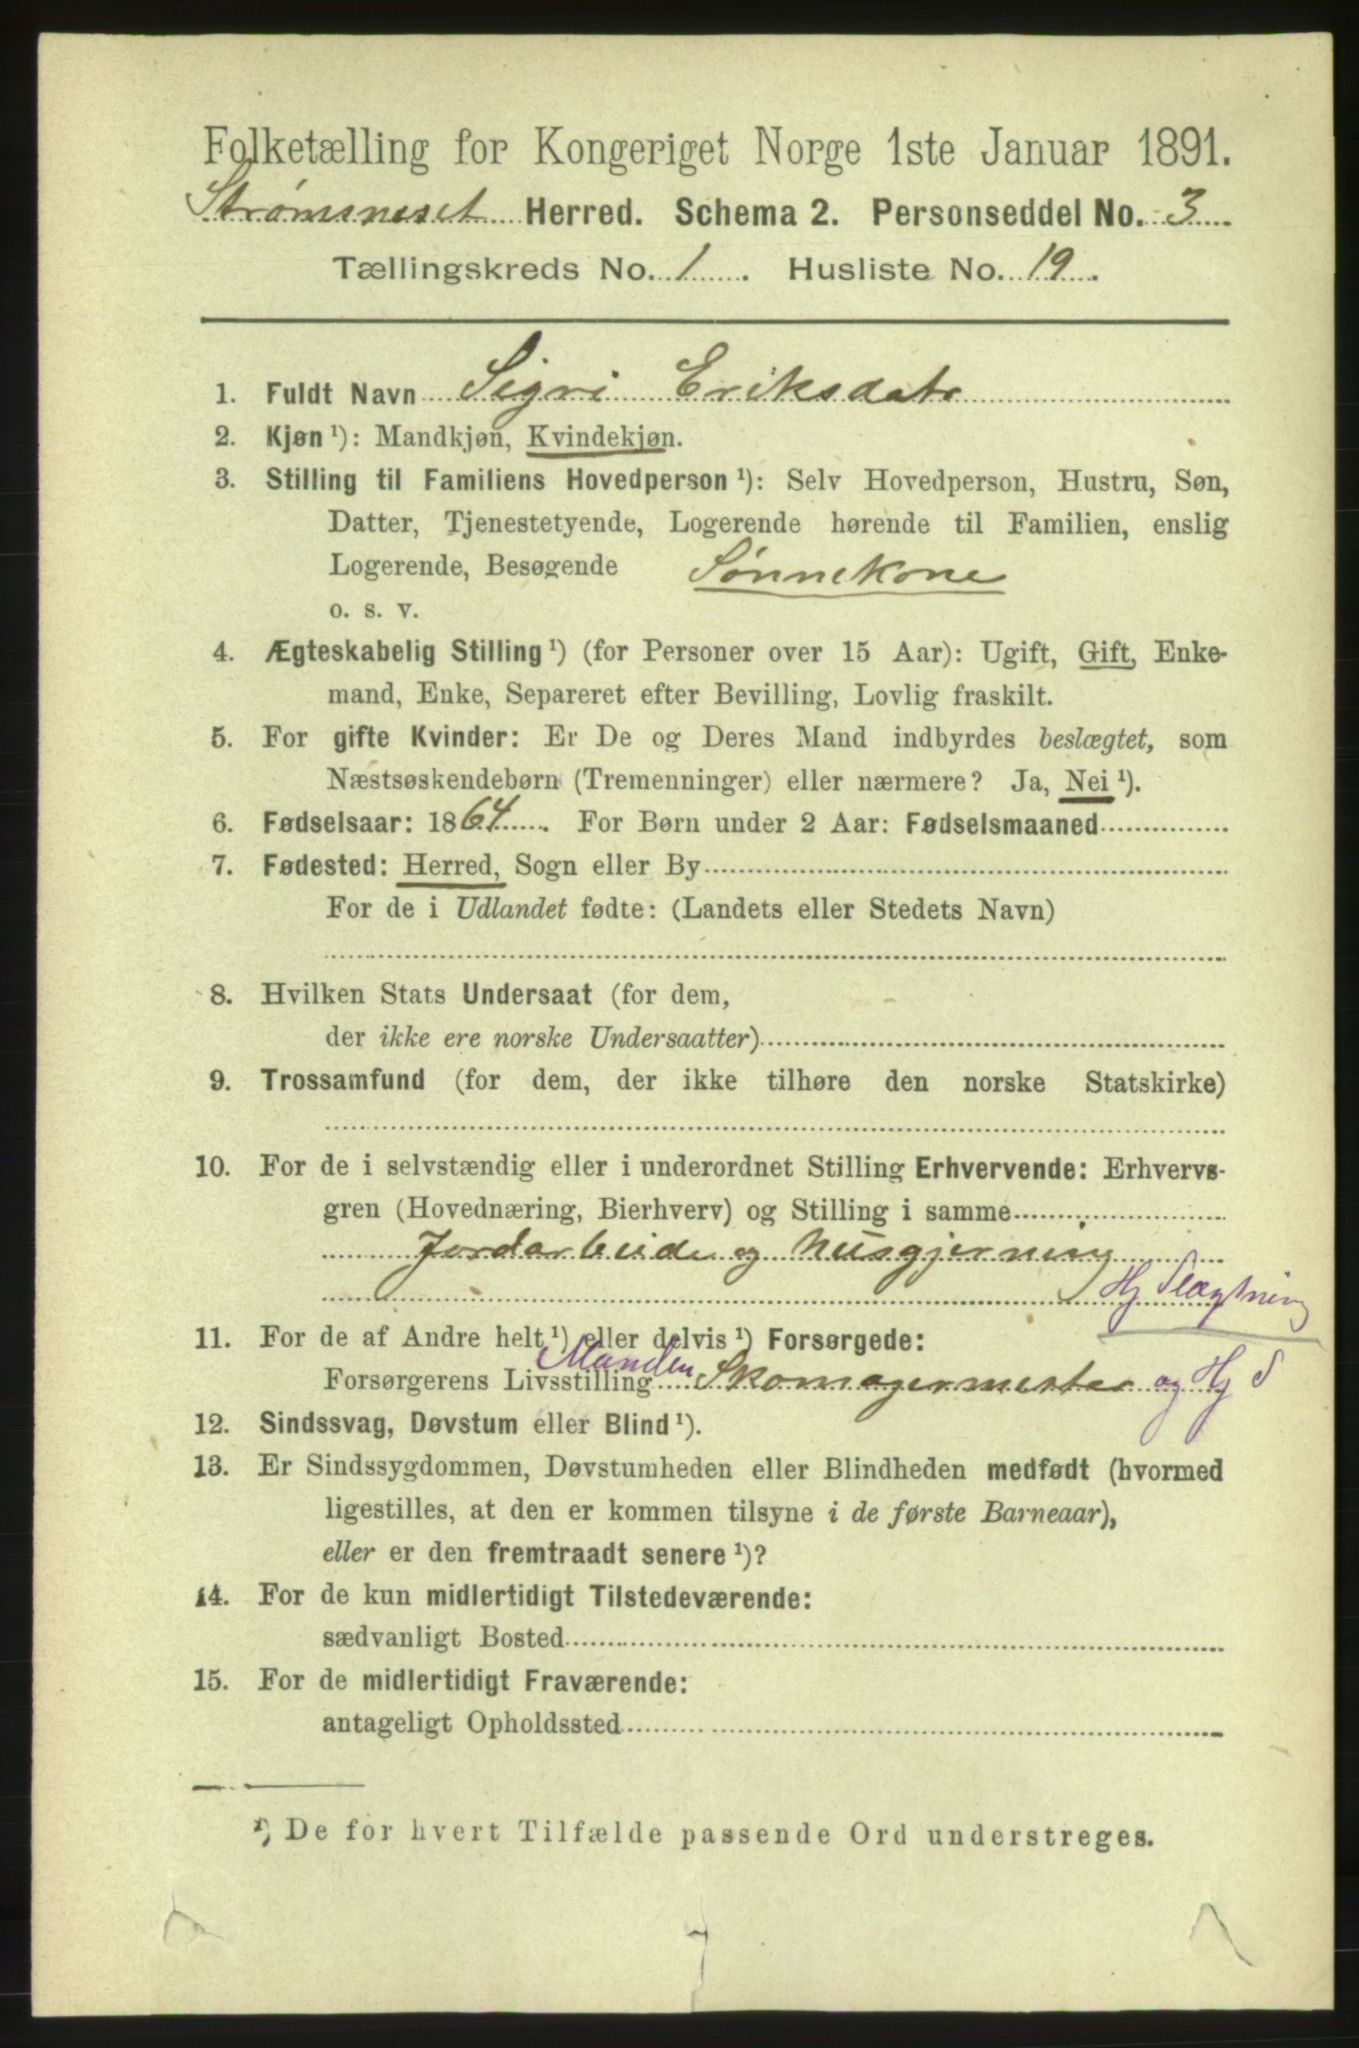 Folketælling for Kongeriget Norge 1ste Januar 1891.
Strømsneset Herred. Schema 2. Personseddel No. 3
Tællingskreds No. 1. Husliste No. 19.
1. Fuldt Navn Sigri Eriksdatr
2. Kjøn ¹): Mandkjøn, Kvindekjøn.
3. Stilling til Familiens Hovedperson ¹): Selv Hovedperson, Hustru, Søn,
Datter, Tjenestetyende, Logerende hørende til Familien, enslig
Logerende, Besøgende Sønnekone
o. s. v.
4. Ægteskabelig Stilling ¹) (for Personer over 15 Aar): Ugift, Gift, Enke-
mand, Enke, Separeret efter Bevilling, Lovlig fraskilt.
5. For gifte Kvinder: Er De og Deres Mand indbyrdes beslægtet, som
Næstsøskendebørn (Tremenninger) eller nærmere? Ja, Nei ¹).
6. Fødselsaar: 1864. For Børn under 2 Aar: Fødselsmaaned
7. Fødested: Herred, Sogn eller By
For de i Udlandet fødte: (Landets eller Stedets Navn)
8. Hvilken Stats Undersaat (for dem,
der ikke ere norske Undersaatter)
9. Trossamfund (for dem, der ikke tilhøre den norske Statskirke)
10. For de i selvstændig eller i underordnet Stilling Erhvervende: Erhvervs-
gren (Hovednæring, Bierhverv) og Stilling i samme
Jordarbeide og Husgjerning
Hj Slagtning
11. For de af Andre helt ¹) eller delvis ¹) Forsørgede:
Forsørgerens Livsstilling Manden Skomagermester og Hj S
12. Sindssvag, Døvstum eller Blind ¹).
13. Er Sindssygdommen, Døvstumheden eller Blindheden medfødt (hvormed
ligestilles, at den er kommen tilsyne i de første Barneaar),
eller er den fremtraadt senere ¹)?
14. For de kun midlertidigt Tilstedeværende:
sædvanligt Bosted
15. For de midlertidigt Fraværende:
antageligt Opholdssted
¹) De for hvert Tilfælde passende Ord understreges.